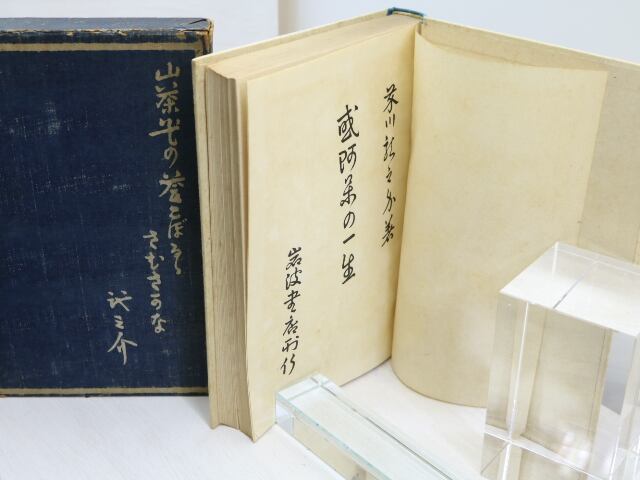 芥川龍之介著
或阿呆の一生
岩波書店刊行
山茶花の莟こぼるゝ
さむさかな
龍之介